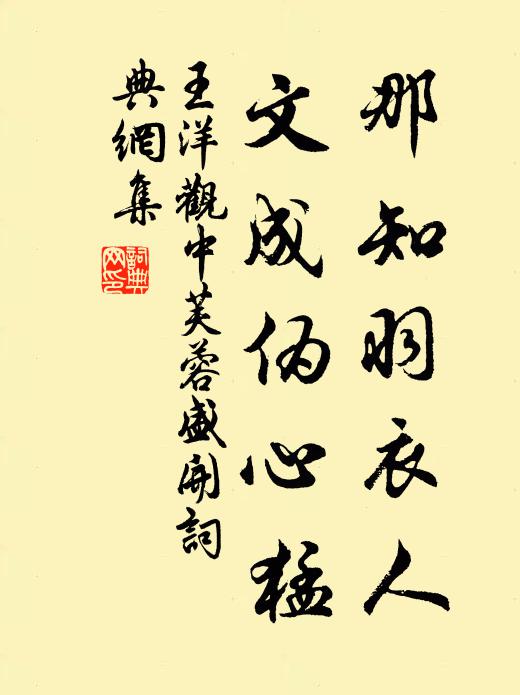 那知羽衣人
文成伤心猛
王洋觀中芙蓉盛開詞
典網集
詞典網印